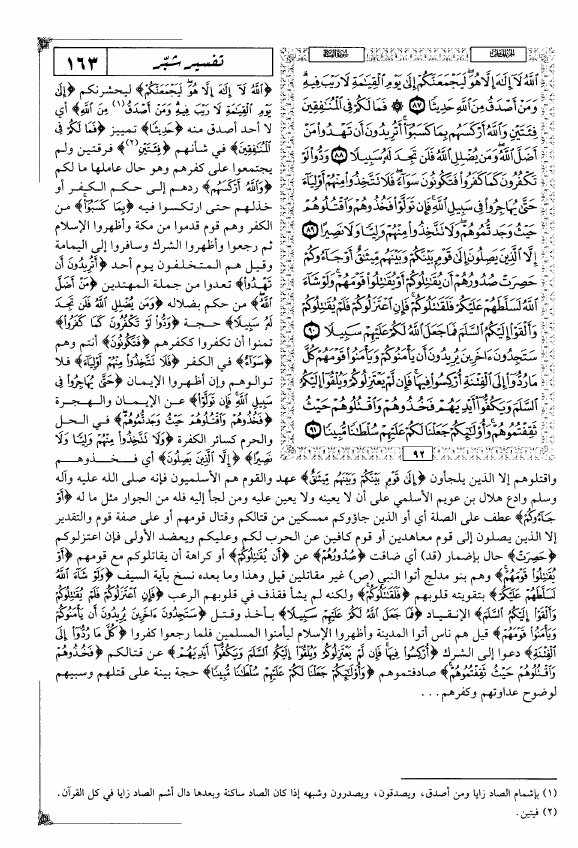 تفسير شبّر
١٦٣
الجزء الخامس
سورة النساء
ٱللَّهُ لَآ إِلَٰهَ إِلَّا هُوَ لَيَجْمَعَنَّكُمْ إِلَىٰ يَوْمِ ٱلْقِيَٰمَةِ لَا رَيْبَ فِيهِ
وَمَنْ أَصْدَقُ مِنَ ٱللَّهِ حَدِيثًا ٨٧ فَمَا لَكُمْ فِى ٱلْمُنَٰفِقِينَ
فِئَتَيْنِ وَٱللَّهُ أَرْكَسَهُم بِمَا كَسَبُوٓا۟ أَتُرِيدُونَ أَن تَهْدُوا۟ مَنْ
أَضَلَّ ٱللَّهُ وَمَن يُضْلِلِ ٱللَّهُ فَلَن تَجِدَ لَهُۥ سَبِيلًا ٨٨ وَدُّوا۟ لَوْ
تَكْفُرُونَ كَمَا كَفَرُوا۟ فَتَكُونُونَ سَوَآءً فَلَا تَتَّخِذُوا۟ مِنْهُمْ أَوْلِيَآءَ
حَتَّىٰ يُهَاجِرُوا۟ فِى سَبِيلِ ٱللَّهِ فَإِن تَوَلَّوْا۟ فَخُذُوهُمْ وَٱقْتُلُوهُمْ
حَيْثُ وَجَدتُّمُوهُمْ وَلَا تَتَّخِذُوا۟ مِنْهُمْ وَلِيًّا وَلَا نَصِيرًا ٨٩
إِلَّا ٱلَّذِينَ يَصِلُونَ إِلَىٰ قَوْمٍۭ بَيْنَكُمْ وَبَيْنَهُم مِّيثَٰقٌ أَوْ جَآءُوكُمْ
حَصِرَتْ صُدُورُهُمْ أَن يُقَٰتِلُوكُمْ أَوْ يُقَٰتِلُوا۟ قَوْمَهُمْ وَلَوْ شَآءَ
ٱللَّهُ لَسَلَّطَهُمْ عَلَيْكُمْ فَلَقَٰتَلُوكُمْ فَإِنِ ٱعْتَزَلُوكُمْ فَلَمْ يُقَٰتِلُوكُمْ
وَأَلْقَوْا۟ إِلَيْكُمُ ٱلسَّلَمَ فَمَا جَعَلَ ٱللَّهُ لَكُمْ عَلَيْهِمْ سَبِيلًا ٩٠
سَتَجِدُونَ ءَاخَرِينَ يُرِيدُونَ أَن يَأْمَنُوكُمْ وَيَأْمَنُوا۟ قَوْمَهُمْ كُلَّ
مَا رُدُّوٓا۟ إِلَى ٱلْفِتْنَةِ أُرْكِسُوا۟ فِيهَا فَإِن لَّمْ يَعْتَزِلُوكُمْ وَيُلْقُوٓا۟ إِلَيْكُمُ
ٱلسَّلَمَ وَيَكُفُّوٓا۟ أَيْدِيَهُمْ فَخُذُوهُمْ وَٱقْتُلُوهُمْ حَيْثُ
ثَقِفْتُمُوهُمْ وَأُو۟لَٰٓئِكُمْ جَعَلْنَا لَكُمْ عَلَيْهِمْ سُلْطَٰنًا مُّبِينًا ٩١
٩٢
﴿اللَّهُ لَا إِلَهَ إِلَّا هُوَ لَيَجْمَعَنَّكُمْ﴾ ليحشرنكم ﴿إِلَى
يَوْمِ الْقِيَامَةِ لَا رَيْبَ فِيهِ وَمَنْ أَصْدَقُ(١) مِنَ اللَّهِ﴾ أي
لا أحد أصدق منه ﴿حَدِيثًا﴾ تمييز ﴿فَمَا لَكُمْ فِي
الْمُنَافِقِينَ﴾ في شأنهم ﴿فِئَتَيْنِ﴾(٢) فرقتين ولم
يجتمعوا على كفرهم وهو حال عاملها ما لكم
﴿وَاللَّهُ أَرْكَسَهُمْ﴾ ردهم إلى حكم الكفر أو
خذلهم حتى ارتكسوا فيه ﴿بِمَا كَسَبُوا﴾ من
الكفر وهم قوم قدموا من مكة وأظهروا الإسلام
ثم رجعوا وأظهروا الشرك وسافروا إلى اليمامة
وقيل هم المتخلفون يوم أحد ﴿أَتُرِيدُونَ أَن
تَهْدُوا﴾ تعدوا من جملة المهتدين ﴿مَنْ أَضَلَّ
اللَّهُ﴾ من حكم بضلاله ﴿وَمَن يُضْلِلِ اللَّهُ فَلَن تَجِدَ
لَهُ سَبِيلًا﴾ حجة ﴿وَدُّوا لَوْ تَكْفُرُونَ كَمَا كَفَرُوا﴾
تمنوا أن تكفروا ككفرهم ﴿فَتَكُونُونَ﴾ أنتم وهم
﴿سَوَاءً﴾ في الكفر ﴿فَلَا تَتَّخِذُوا مِنْهُمْ أَوْلِيَاءَ﴾ فلا
توالوهم وإن أظهروا الإيمان ﴿حَتَّى يُهَاجِرُوا فِي
سَبِيلِ اللَّهِ فَإِن تَوَلَّوْا﴾ عن الإيمان والهجرة
﴿فَخُذُوهُمْ وَاقْتُلُوهُمْ حَيْثُ وَجَدتُّمُوهُمْ﴾ في الحل
والحرم كسائر الكفرة ﴿وَلَا تَتَّخِذُوا مِنْهُمْ وَلِيًّا وَلَا
نَصِيرًا﴾ ﴿إِلَّا الَّذِينَ يَصِلُونَ﴾ أي فخذوهم
واقتلوهم إلا الذين يلجأون ﴿إِلَى قَوْمٍ بَيْنَكُمْ وَبَيْنَهُم مِّيثَاقٌ﴾ عهد والقوم هم الأسلميون فإنه صلى الله عليه وآله
وسلم وادع هلال بن عويم الأسلمي على أن لا يعينه ولا يعين عليه ومن لجأ إليه فله من الجوار مثل ما له ﴿أَوْ
جَاءُوكُمْ﴾ عطف على الصلة أي أو الذين جاؤوكم ممسكين من قتالكم وقتال قومهم أو على صفة قوم والتقدير
إلا الذين يصلون إلى قوم معاهدين أو قوم كافين عن الحرب لكم وعليكم ويعضد الأولى فإن اعتزلوكم
﴿حَصِرَتْ﴾ حال بإضمار (قد) أي ضاقت ﴿صُدُورُهُمْ﴾ عن ﴿أَن يُقَاتِلُوكُمْ﴾ أو كراهة أن يقاتلوكم مع قومهم ﴿أَوْ
يُقَاتِلُوا قَوْمَهُمْ﴾ وهم بنو مدلج أتوا النبي (ص) غير مقاتلين قيل وهذا وما بعده نسخ بآية السيف ﴿وَلَوْ شَاءَ اللَّهُ
لَسَلَّطَهُمْ عَلَيْكُمْ﴾ بتقويته قلوبهم ﴿فَلَقَاتَلُوكُمْ﴾ ولكنه لم يشأ فقذف في قلوبهم الرعب ﴿فَإِنِ اعْتَزَلُوكُمْ فَلَمْ يُقَاتِلُوكُمْ
وَأَلْقَوْا إِلَيْكُمُ السَّلَمَ﴾ الإنقياد ﴿فَمَا جَعَلَ اللَّهُ لَكُمْ عَلَيْهِمْ سَبِيلًا﴾ بأخذ وقتل ﴿سَتَجِدُونَ آخَرِينَ يُرِيدُونَ أَن يَأْمَنُوكُمْ
وَيَأْمَنُوا قَوْمَهُمْ﴾ قيل هم ناس أتوا المدينة وأظهروا الإسلام ليأمنوا المسلمين فلما رجعوا كفروا ﴿كُلَّ مَا رُدُّوا إِلَى
الْفِتْنَةِ﴾ دعوا إلى الشرك ﴿أُرْكِسُوا فِيهَا فَإِن لَّمْ يَعْتَزِلُوكُمْ وَيُلْقُوا إِلَيْكُمُ السَّلَمَ وَيَكُفُّوا أَيْدِيَهُمْ﴾ عن قتالكم ﴿فَخُذُوهُمْ
وَاقْتُلُوهُمْ حَيْثُ ثَقِفْتُمُوهُمْ﴾ صادفتموهم ﴿وَأُولَئِكُمْ جَعَلْنَا لَكُمْ عَلَيْهِمْ سُلْطَانًا مُّبِينًا﴾ حجة بينة على قتلهم وسبيهم
لوضوح عداوتهم وكفرهم...
(١) بإشمام الصاد زايا ومن أصدق، ويصدقون، ويصدرون وشبهه إذا كان الصاد ساكنة وبعدها دال أشم الصاد زايا في كل القرآن.
(٢) فيتين.